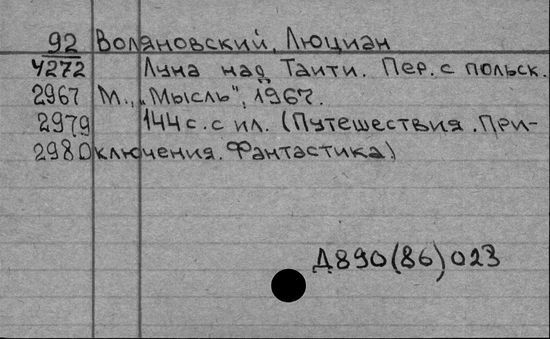 92 Воляновский, Люциан
4272 Луна над Таити. Пер. с польск.
2967 М., „Мысль", 1967.
2979 144 с. с ил. (Путешествия. При-
2980 ключения. Фантастика)
Д890(86)023